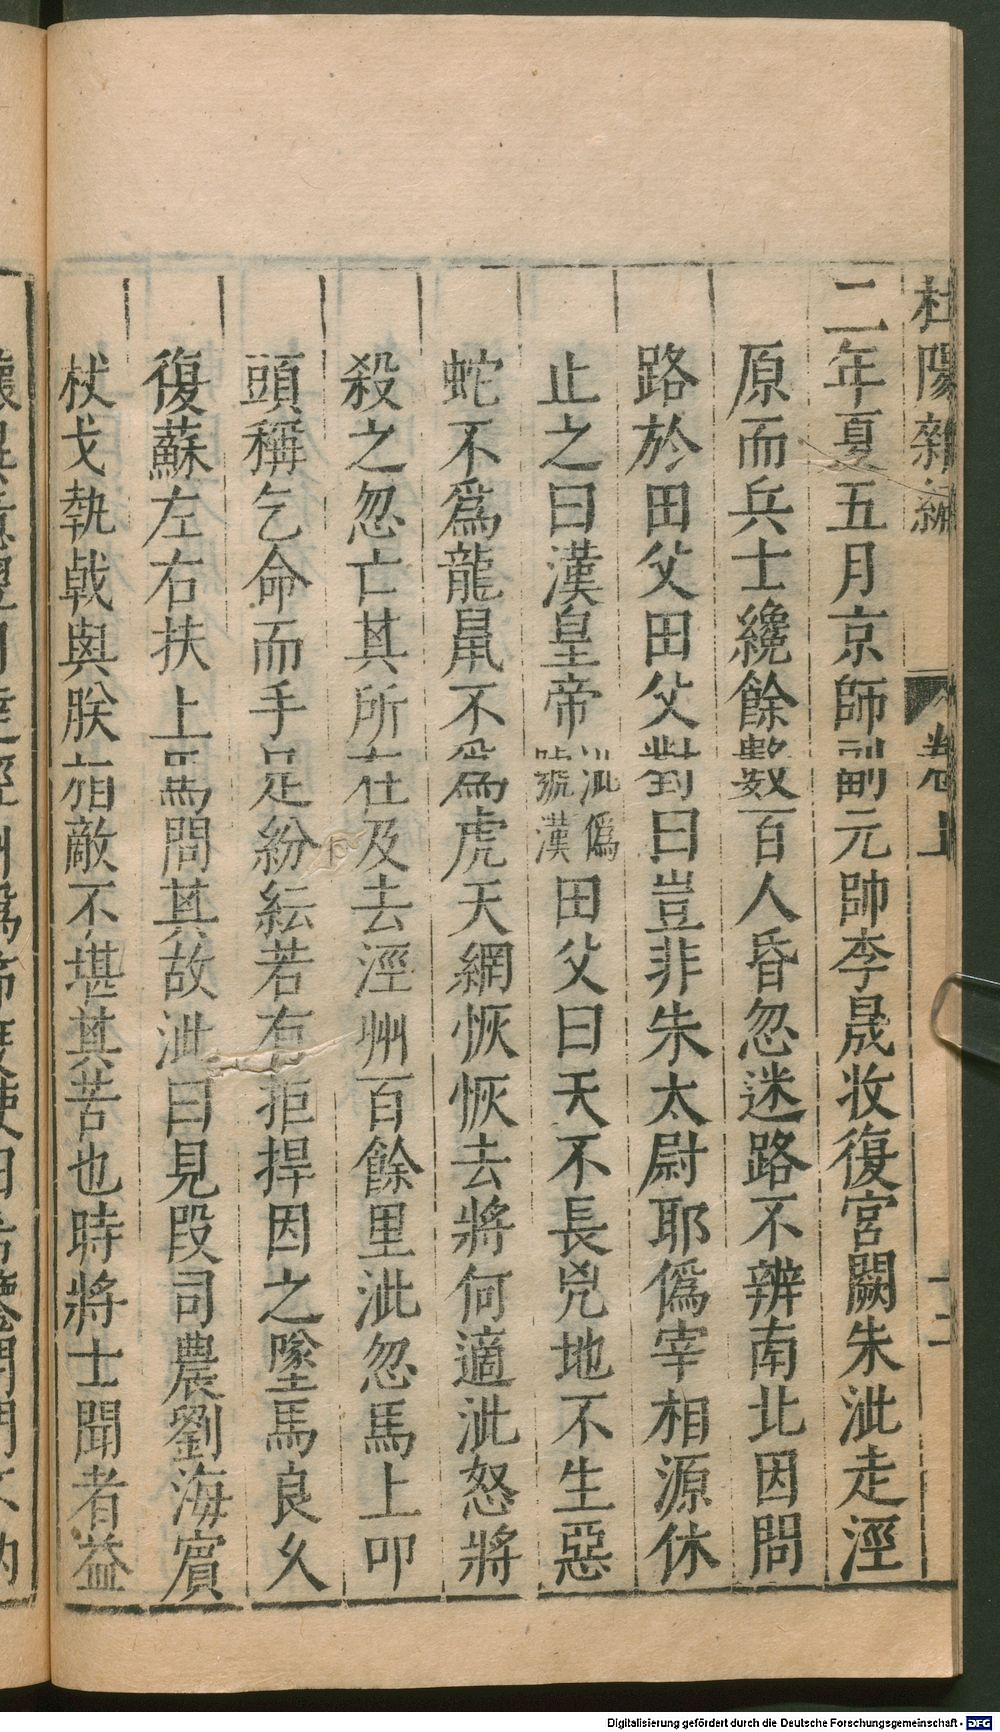 杜陽雜編
卷上
十二
二年夏五月京師副元帥李晟收復宮闕朱泚走涇
原而兵士纔餘數百人昏忽迷路不辨南北因問
路於田父田父對曰豈非朱太尉耶偽宰相源休
止之曰漢皇帝泚偽號漢田父曰天不長兇地不生惡
蛇不為龍鼠不為虎天網恢恢去將何適泚怒將
殺之忽亡其所在及去涇州百餘里泚忽馬上叩
頭稱乞命而手足紛紜若有拒捍因之墜馬良久
復蘇左右扶上馬問其故泚曰見段司農劉海賓
杖戈執戟與朕相敵不堪其苦也時將士聞者益
Digitalisierung gefördert durch die Deutsche Forschungsgemeinschaft - DFG